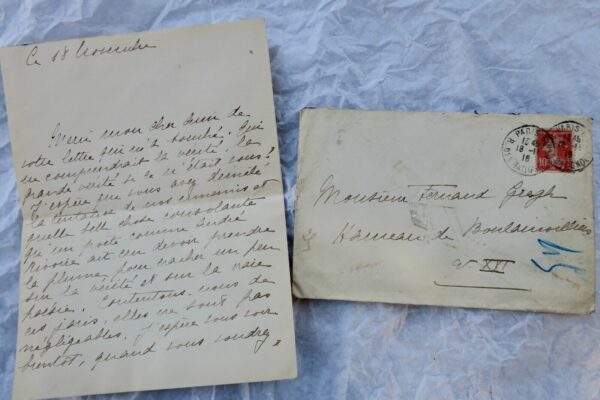 Ce 18 Novembre
Merci mon cher Ami de
votre lettre qui m'a touché. Qui
en comprendrait la vérité, la
grande vérité si ce n'était vous?
J'espère que vous avez démêlé
la tentative de nos ennemis et
quelle belle chose consolante
qu'un poète comme André
Rivoire ait cru devoir prendre
la plume, pour cracher un peu
sur la vérité et sur la vraie
poésie. Contentons-nous de
ces joies, elles ne sont pas
négligeables. J'espère vous voir
bientôt, quand vous voudrez.
PARIS
18 - 11
10
Monsieur Fernand Gregh
Hameau de Boulainvilliers
XVI